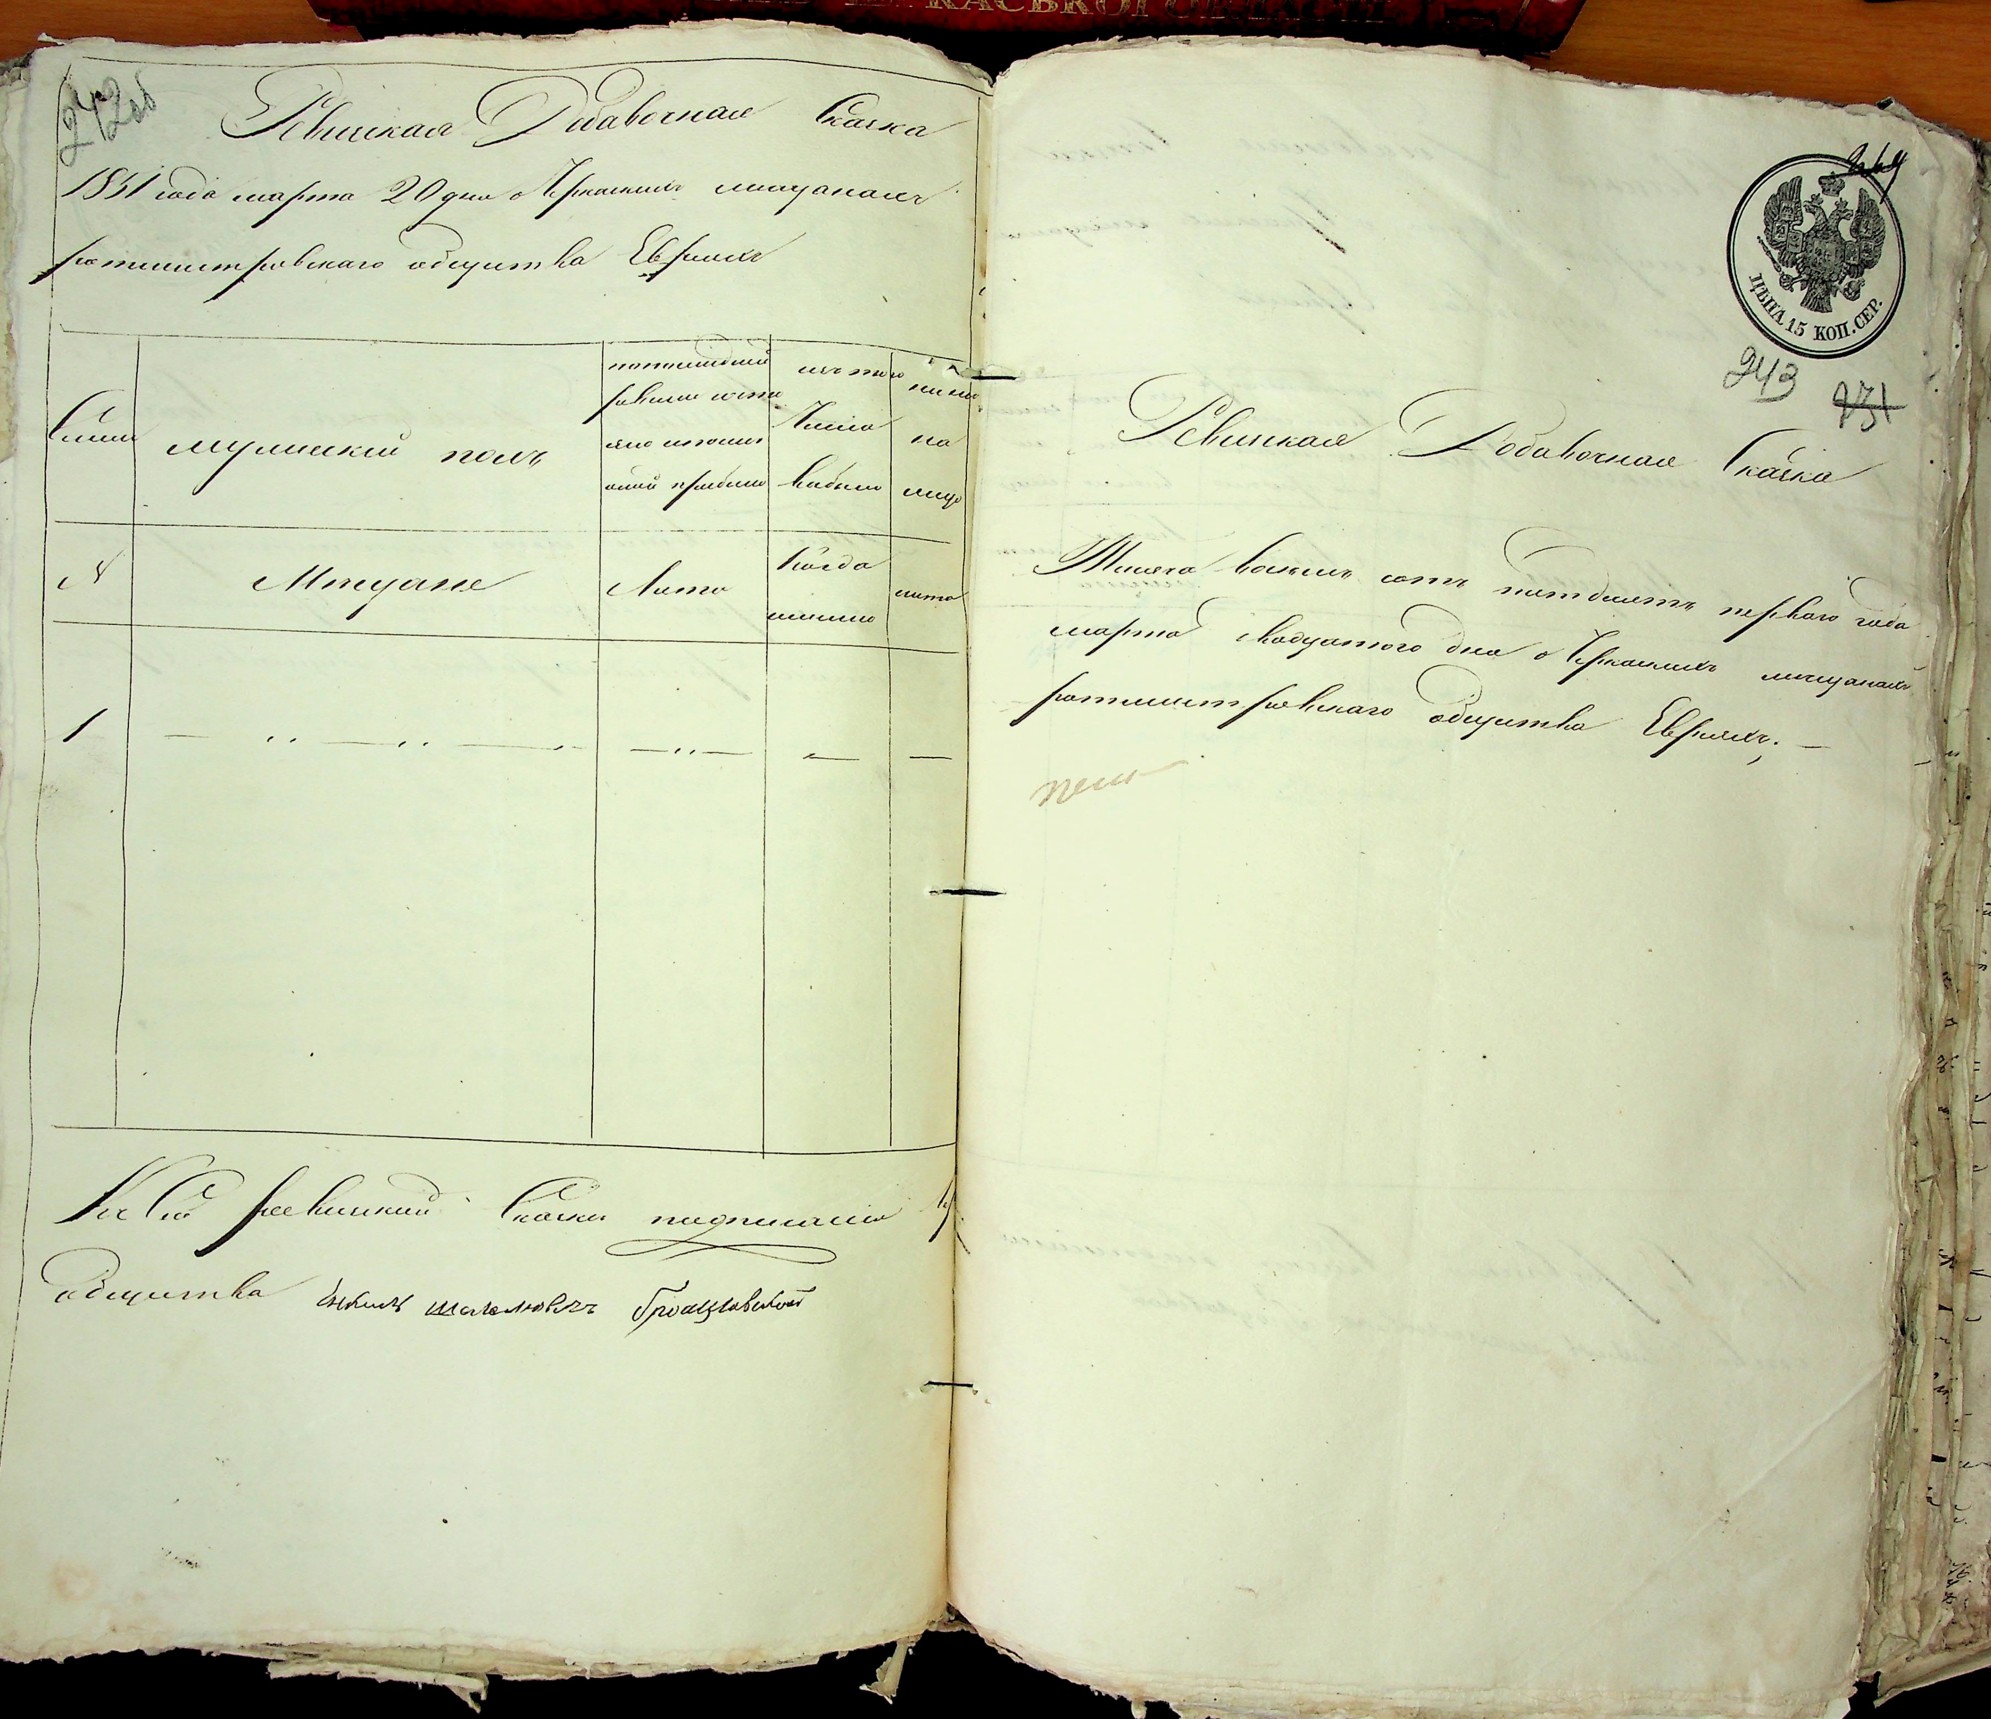 242об
Ревизская Добавочная Сказка
1851 года марта 20 дня о Черкаскихъ мещанахъ
ротмистровскаго общества Евреяхъ
Семьи
мужиский полъ
попоследней
ревизии состо
яло и после
оной прибыло
изъ того
Числа
выбыло
ныне
на
лицо
№
Мещане
Лета
Когда
именно
лета
1
К Сей ревизкой Сказки подписался
общества шмулевичъ
249
ЦѢНА 15 КОП. СЕР.
243
231
Ревизкая Добавочная Сказка
Тысяча восемь сотъ пятдесятъ первого года
марта двадцатого дня о Черкаскихъ мещанахъ
ротмистровскаго общества Евреяхъ. —